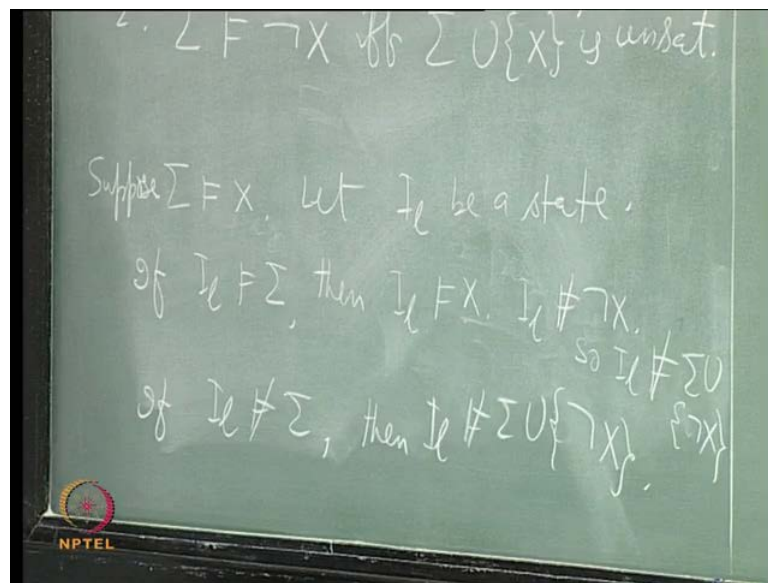 2. Σ ⊨ ¬X iff Σ ∪ {X} is unsat.
Suppose Σ ⊨ X. Let I_l be a state.
If I_l ⊨ Σ, then I_l ⊨ X. I_l ⊭ ¬X.
So I_l ⊭ Σ ∪ {¬X}
If I_l ⊭ Σ, then I_l ⊭ Σ ∪ {¬X}.
NPTEL